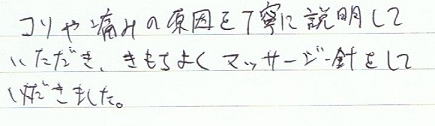 コリや痛みの原因を丁寧に説明して
いただき、きもちよくマッサージ・針をして
いただきました。